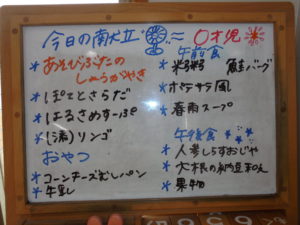 今日の献立 0才児
* あそびぶたの
しょうがやき
* ぽてとさらだ
* はるさめすーぷ
* リンゴ
おやつ
* コーンチーズむしパン
* 牛乳
午前食
* 鮭バーグ
* ポテサラ風
* 春雨スープ
午後食
* 人参しらすおじや
* 大根の納豆和え
* 果物